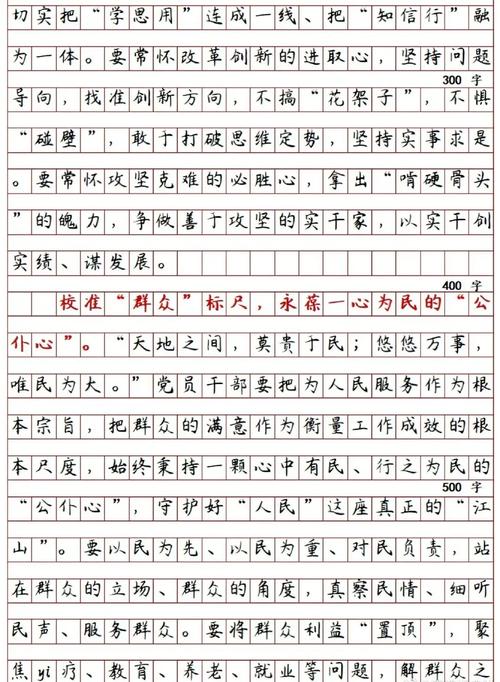 切实把“学思用”连成一线、把“知信行”融
为一体。要常怀改革创新的进取心，坚持问题
300 字
导向，找准创新方向，不搞“花架子”，不惧
“碰壁”，敢于打破思维定势，坚持实事求是
。要常怀攻坚克难的必胜心，拿出“啃硬骨头
”的魄力，争做善于攻坚的实干家，以实干创
实绩、谋发展。
400 字
校准“群众”标尺，永葆一心为民的“公
仆心”。“天地之间，莫贵于民；悠悠万事，
唯民为大。”党员干部要把为人民服务作为根
本宗旨，把群众的满意作为衡量工作成效的根
本尺度，始终秉持一颗心中有民、行之为民的
500 字
“公仆心”，守护好“人民”这座真正的“江
山”。要以民为先、以民为重、对民负责，站
在群众的立场、群众的角度，真察民情、细听
民声、服务群众。要将群众利益“置顶”，聚
焦yi疗、教育、养老、就业等问题，解群众之